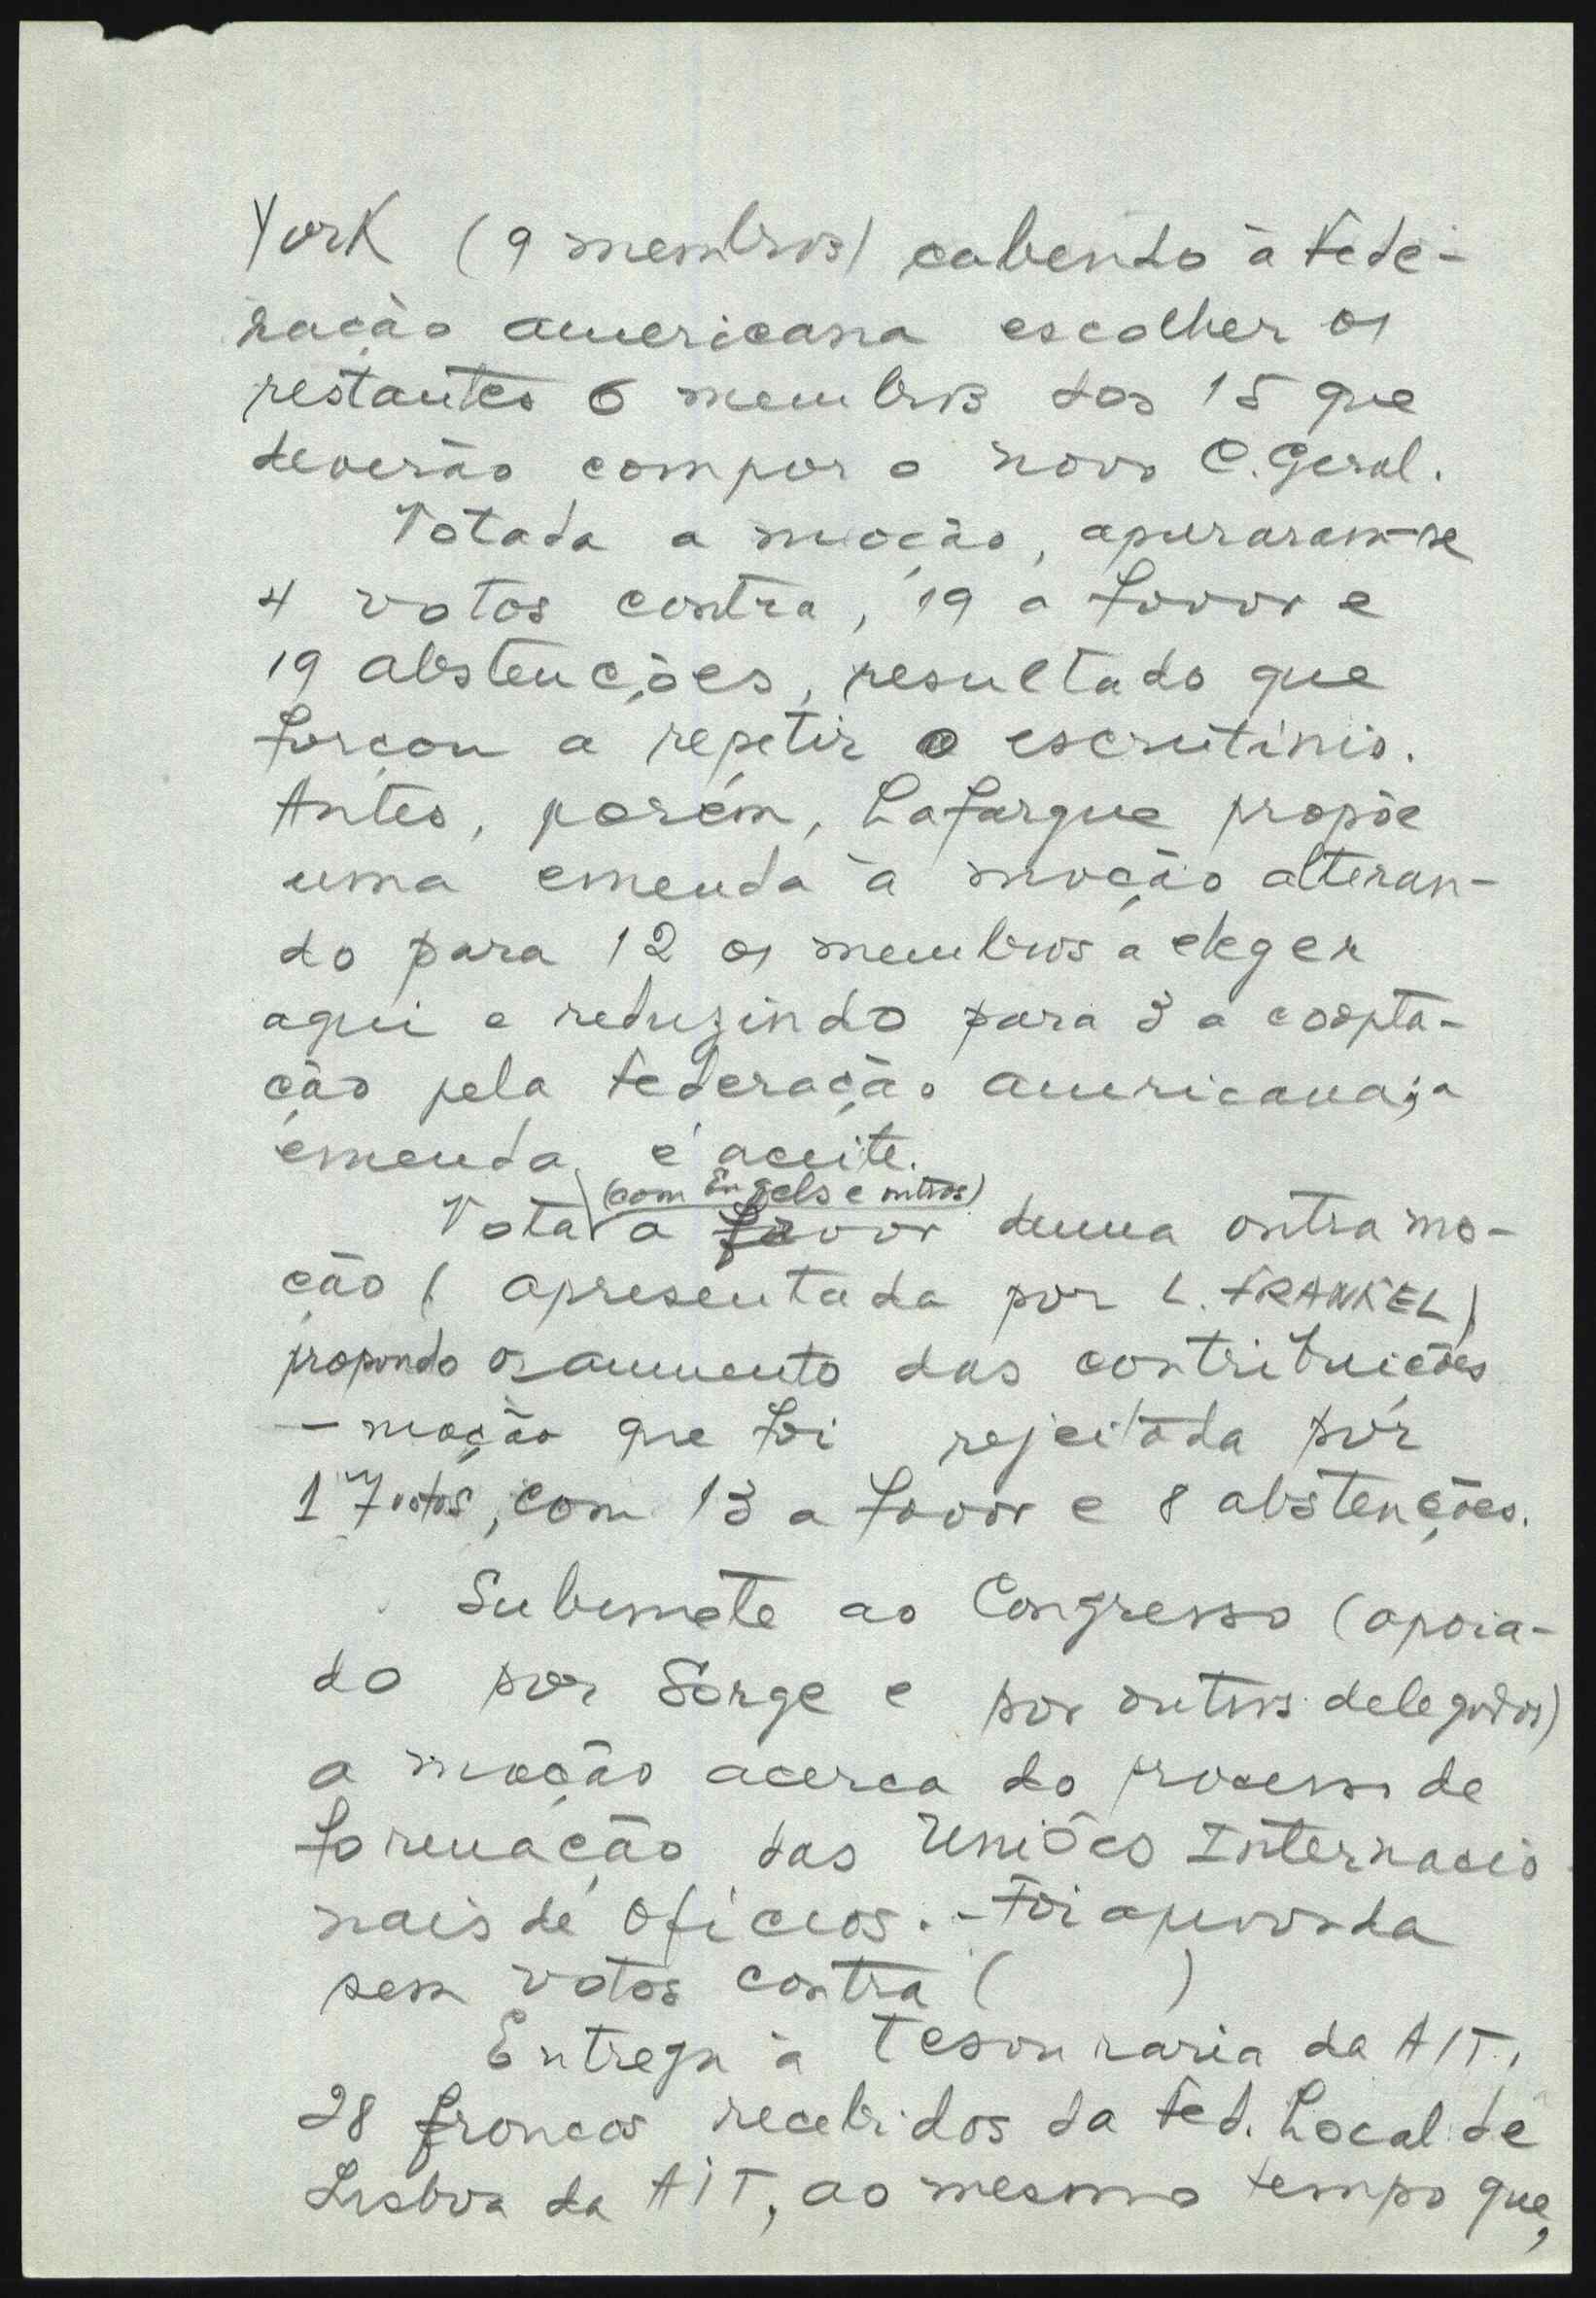 York (9 membros) cabendo à Fede-
ração americana escolher os
restantes 6 membros dos 15 que
deverão compor o novo C. Geral.
Votada a moção, apuraram-se
4 votos contra, 19 a favor e
19 abstenções, resultado que
forçou a repetir o escrutínio.
Antes, porém, Lafargue propõe
uma emenda à moção alteran-
do para 12 os membros a eleger
aqui e reduzindo para 3 a coopta-
ção pela Federação americana; a
emenda é aceite.
(com Engels e outros)
Vota a favor duma outra mo-
ção (apresentada por L. FRANKEL)
propondo o aumento das contribuições
— moção que foi rejeitada por
17 votos, com 13 a favor e 8 abstenções.
Submete ao Congresso (apoia-
do por Sorge e por outros delegados)
a moção acerca do processo de
formação das Uniões Internacio-
nais de Ofícios. - Foi aprovada
sem votos contra ( )
Entrega à Tesouraria da AIT,
28 francos recebidos da Fed. Local de
Lisboa da AIT, ao mesmo tempo que,